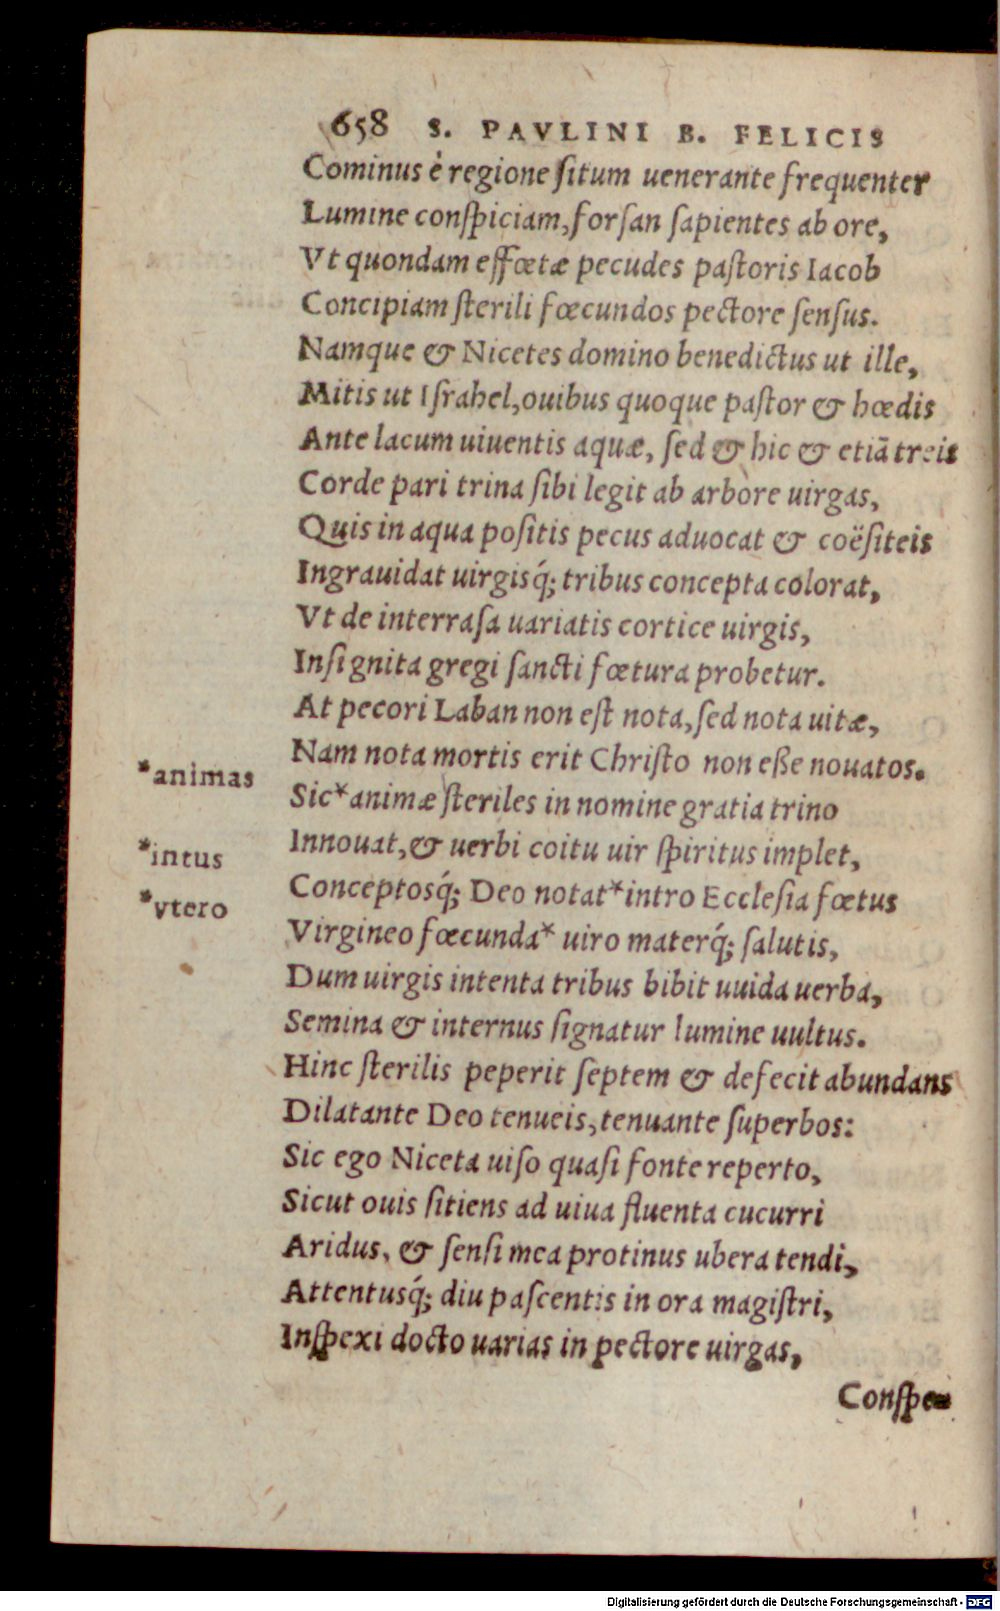 658 S. PAVLINI B. FELICIS
Cominus è regione ſitum uenerante frequenter
Lumine conſpiciam, forſan ſapientes ab ore,
Vt quondam effœtæ pecudes paſtoris Iacob
Concipiam ſterili fœcundos pectore ſenſus.
Namque & Nicetes domino benedictus ut ille,
Mitis ut Iſrahel, ouibus quoque paſtor & hœdis
Ante lacum uiuentis aquæ, ſed & hic & etiã treis
Corde pari trina ſibi legit ab arbore uirgas,
Quis in aqua poſitis pecus aduocat & coëſiteis
Ingrauidat uirgisq́; tribus concepta colorat,
Vt de interraſa uariatis cortice uirgis,
Inſignita gregi ſancti fœtura probetur.
At pecori Laban non eſt nota, ſed nota uitæ,
Nam nota mortis erit Chriſto non eße nouatos.
*animas
Sic* animæ ſteriles in nomine gratia trino
Innouat, & uerbi coitu uir ſpiritus implet,
*intus
Conceptosq́; Deo notat* intro Eccleſia fœtus
*vtero
Virgineo fœcunda* uiro materq́; ſalutis,
Dum uirgis intenta tribus bibit uuida uerba,
Semina & internus ſignatur lumine uultus.
Hinc ſterilis peperit ſeptem & defecit abundans
Dilatante Deo tenueis, tenuante ſuperbos:
Sic ego Niceta uiſo quaſi fonte reperto,
Sicut ouis ſitiens ad uiua fluenta cucurri
Aridus, & ſenſi mea protinus ubera tendi,
Attentusq́; diu paſcentis in ora magiſtri,
Inſpexi docto uarias in pectore uirgas,
Conſpe-
Digitalisierung gefördert durch die Deutsche Forschungsgemeinschaft - DFG